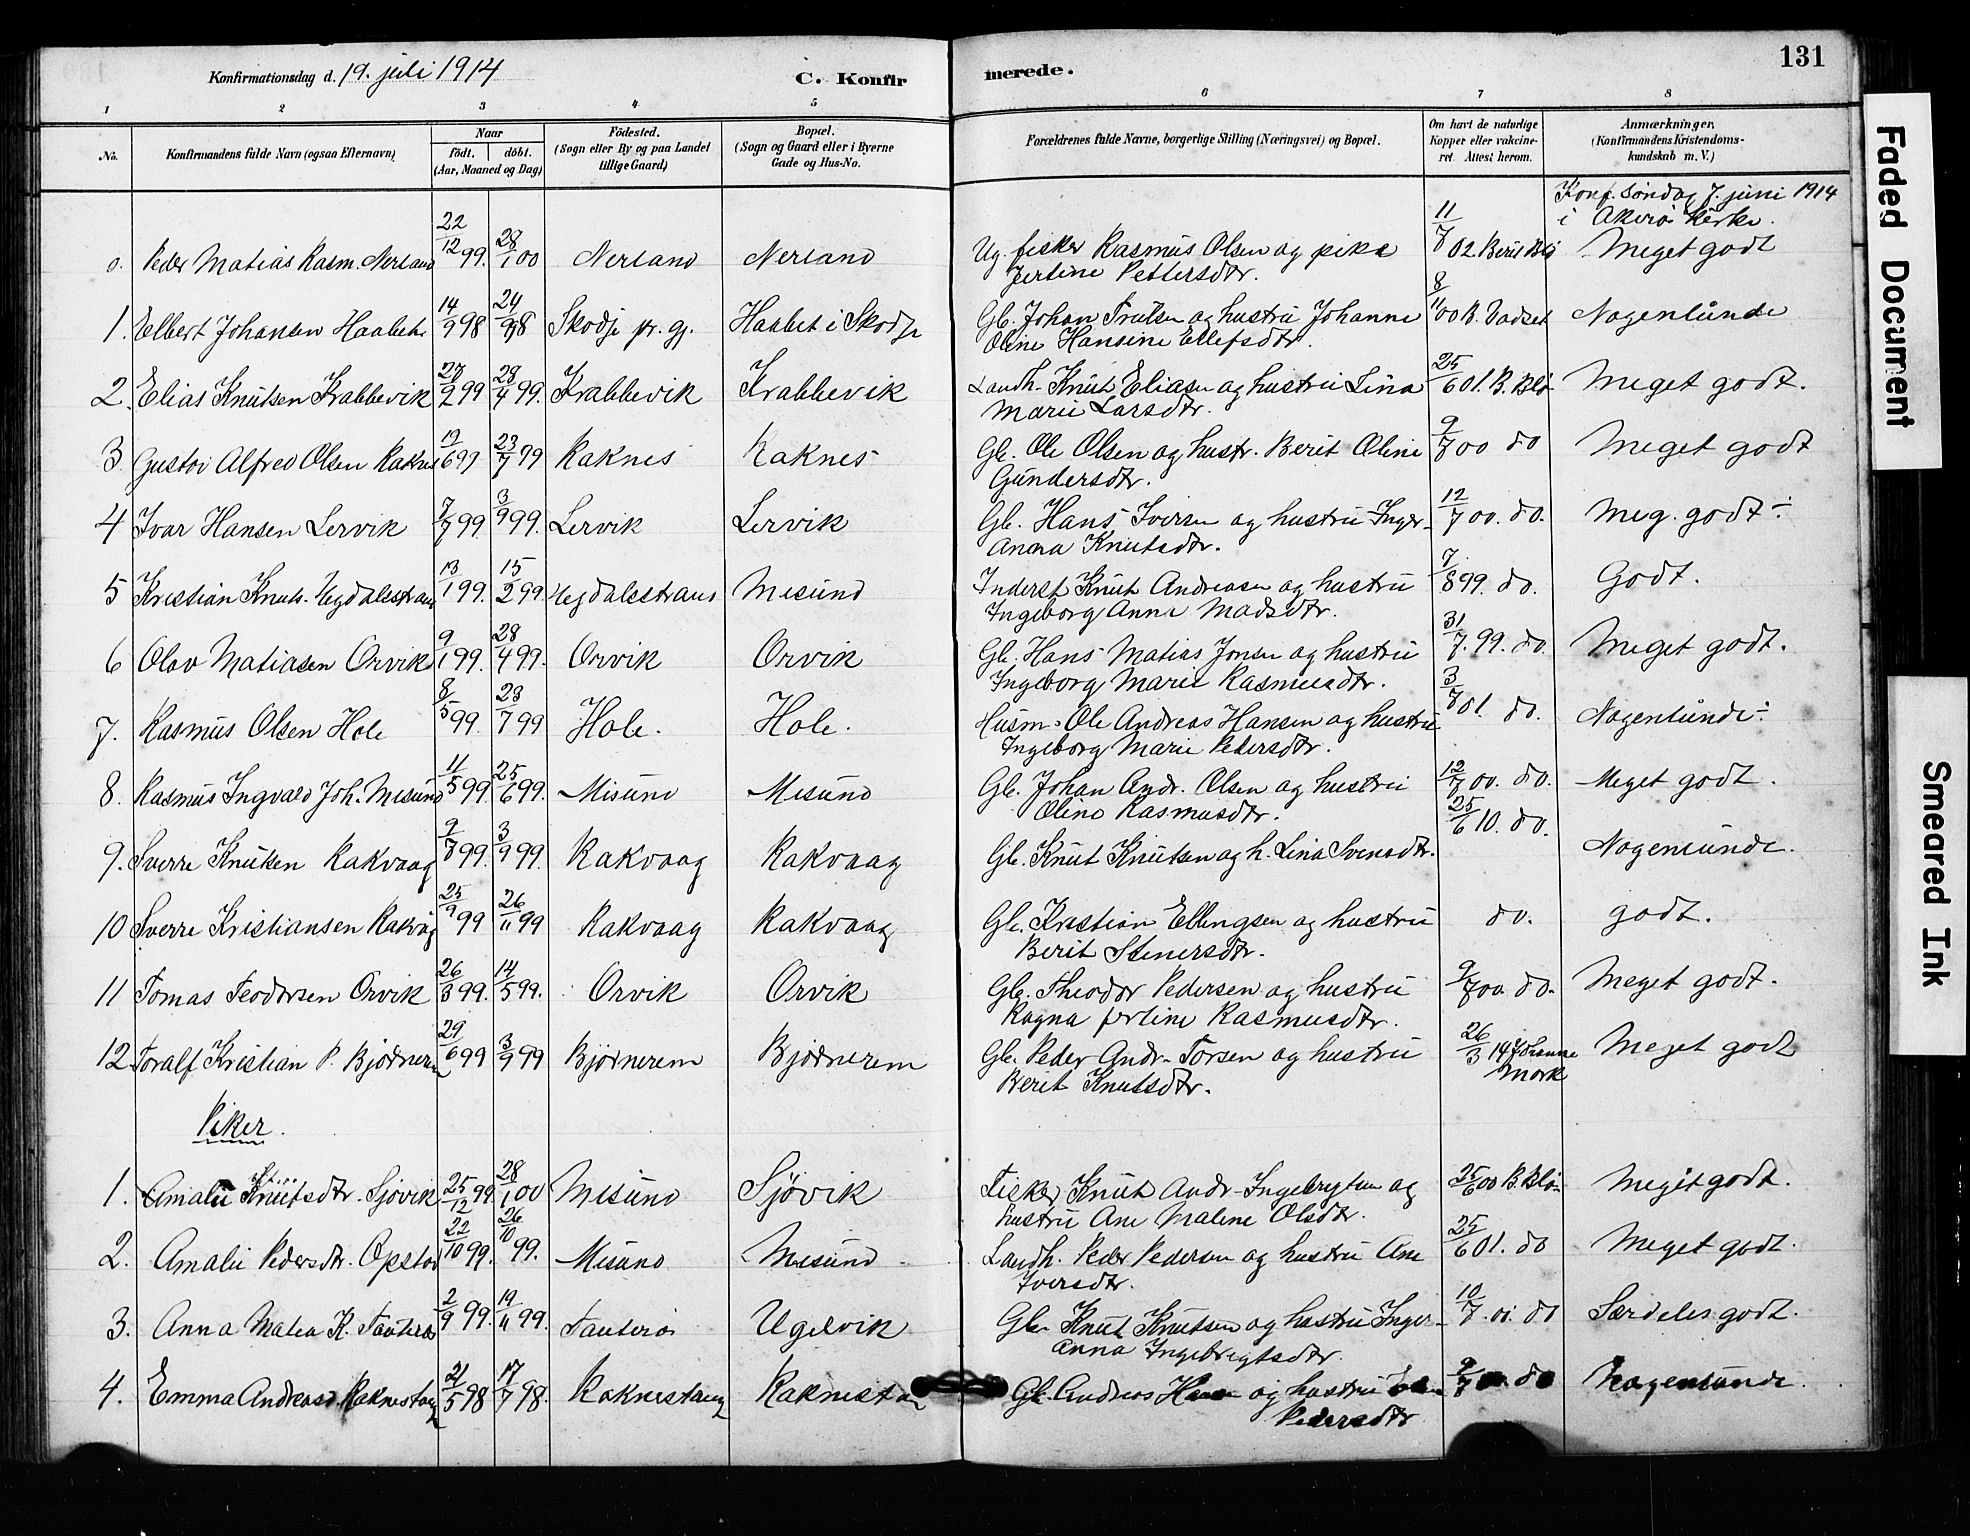 Konfirmationsdag d. 19. juli 1914
C. Konfirmerede.
131
1 2 3 4 5 6 7 8
No.
Konfirmandens fulde Navn (ogsaa Efternavn)
Naar
födt. döbt.
(Aar, Maaned og Dag)
Födested.
(Sogn eller By og paa Landet tillige Gaard)
Bopæl.
(Sogn og Gaard eller i Byerne Gade og Hus-No.
Forældrenes fulde Navne, borgerlige Stilling (Næringsvei) og Bopæl.
Om havt de naturlige Kopper eller vakcineret. Attest herom.
Anmærkninger.
(Konfirmandens Kristendomskundskab m. V.)
Konf. Söndag 7. juni 1914
i Akerö kirke.
0. Peder Matias Rasm. Nerland 22/12 99. 28/1 00 Nerland Nerland Ug. fisker Rasmus Olsen og pike 11/8 02 Berit Blö Meget godt
Jertine Pettersdtr.
1. Elbert Johansen Haabet 14/9 98 24/9 98 Skodje pr. gj. Haabet i Skodje Gb. Johan Trulsen og hustru Johanne 8/11 00 B. Vadset Nogenlunde
Oline Hansine Ellefsdtr.
2. Elias Knutsen Krabbevik 27/2 99 28/4 99. Krabbevik Krabbevik Landh. Knut Eliasen og hustru Lina 25/6 01. B. Blö Meget godt.
Marie Larsdtr.
3 Gustav Alfred Olsen Raknes 19/6 99 23/7 99 Raknes Raknes Gb. Ole Olsen og hustr. Berit Oline 9/7 00 do Meget godt
Gundersdtr.
4 Ivar Hansen Lervik 7/7 99. 3/9 99. Lervik Lervik Gb. Hans Iversen og hustru Inger- 12/7 00. do. Meg. godt ÷
Anna Knutsdtr.
5 Kristian Knuts. Hegdalsstrand 13/1 99. 15/2 99. Hegdalsstrand Misund Inderst Knut Andreasen og hustru 7/8 99. do. Godt.
Ingeborg Anna Madsdtr.
6 Olav Matiasen Orvik 9/1 99. 28/4 99. Orvik Orvik Gb. Hans Matias Jonsen og hustru 31/7. 99. do. Meget godt.
Ingeborg Marie Rasmusdtr.
7. Rasmus Olsen Hole 8/5 99. 28/7 99 Hole. Hole. Husm. Ole Andreas Hansen og hustru 3/7 01. do. Nogenlunde ÷
Ingeborg Marie Pedersdtr.
8. Rasmus Ingvald Joh. Misund 11/5 99 25/6 99. Misund Misund Gb. Johan Andr. Olsen og hustru 12/7 00. do. Meget godt.
Oline Rasmusdtr.
9. Sverre Knutsen Rakvaag 9/8 99. 3/9 99. Rakvaag Rakvaag Gb. Knut Knutsen og h. Lina Svensdtr. 25/6 10. do. Nogenlunde.
10 Sverre Kristiansen Rakvåg 25/9 99 26/11 99 Rakvaag Rakvaag Gb. Kristian Ellingsen og hustru do. godt.
Berit Stenersdtr.
11 Tomas Teodorsen Orvik 26/3 99. 14/5 99. Orvik Orvik Gb. Theodor Pedersen og hustru 9/7 00. do. Meget godt.
Ragna Jertine Rasmusdtr.
12. Toralf Kristian P. Björnerem 29/6 99 3/9 99 Björnerem Björnerem Gb. Peder Andr. Torsen og hustru 26/3 14 Johanne Mork Meget godt
Berit Knutsdtr.
Piker.
1. Amalie Knutsdtr. Sjövik 25/12 99 28/1 00 Misund Sjövik Fisker Knut Andr. Ingebrigtsen og 25/6 00 B. Blö- Meget godt.
hustru Ane Malene Olsdtr.
2. Amalie Pedersdtr. Opstad 22/10 99. 26/10 99. Misund Misund Landh. Peder Pedersen og hustru Ane 25/6 01. do Meget godt.
Iversdtr.
3. Anna Matea K. Tauterö 2/9 99. 19/11 99. Tauterö Ugelvik Gb. Knut Knutsen og hustru Inger- 10/7. 01. do Særdeles godt.
Anna Ingebrigtsdtr.
4. Emma Andreasd. Raknestang 21/5 98 17/7 98. Raknestang Raknestan Gb. Andreas og hustru 9/7 do Nogenlunde.
Pedersdtr
Faded Document
Smeared Ink